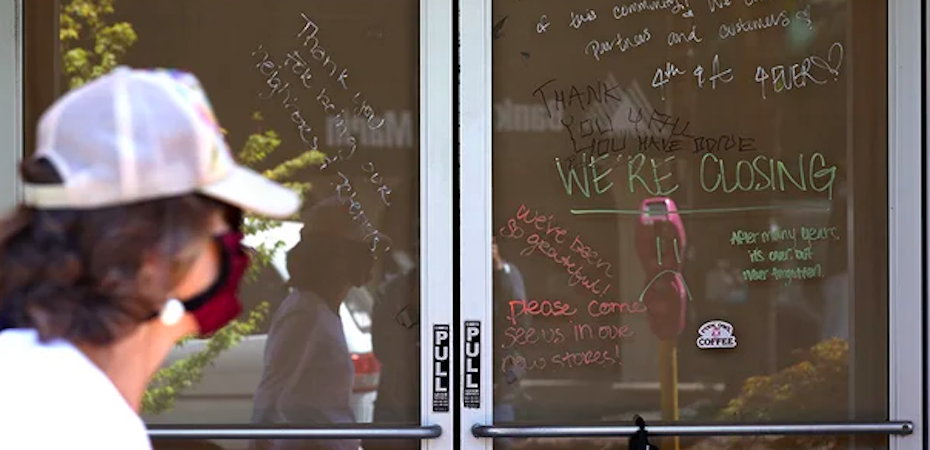 Thank you
for being our
neighbors and
friends
of this community!
Partners and customers!
4th & A 4EVER
THANK
YOU 4 ALL
YOU HAVE DONE
WE'RE CLOSING
After many years,
it's over, but
never forgotten
We've been
so grateful!
please come
see us in our
new stores!
PULL
PULL
COFFEE